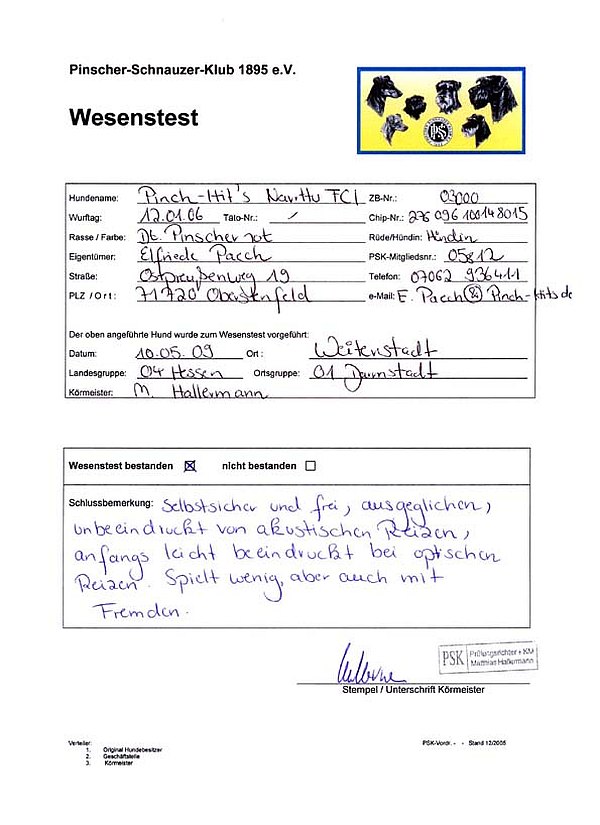 Pinscher-Schnauzer-Klub 1895 e.V.
Wesenstest
PSK
Hundename: Pinch-Hit's Navittu FCI ZB-Nr.: 03000
Wurftag: 12.01.06 Täto-Nr.: / Chip-Nr.: 276096100148015
Rasse / Farbe: Dt. Pinscher rot Rüde/Hündin: Hündin
Eigentümer: Elfriede Pacch PSK-Mitgliedsnr.: 05812
Straße: Ostpreußenweg 19 Telefon: 07062 936411
PLZ / Ort: 71720 Oberstenfeld e-Mail: E. Pacch @ Pinch-Hits.de
Der oben angeführte Hund wurde zum Wesenstest vorgeführt:
Datum: 10.05.09 Ort: Weiterstadt
Landesgruppe: 04 Hessen Ortsgruppe: 01 Darmstadt
Körmeister: M. Hallermann
Wesenstest bestanden ☒ nicht bestanden ☐
Schlussbemerkung: Selbstsicher und frei, ausgeglichen,
unbeeindruckt von akustischen Reizen,
anfangs leicht beeindruckt bei optischen
Reizen. Spielt wenig, aber auch mit
Fremden.
PSK Prüfungsrichter + KM
Matthias Hallermann
Stempel / Unterschrift Körmeister
Verteiler:
1. Original Hundebesitzer
2. Geschäftstelle
3. Körmeister
PSK-Vordr. - - Stand 12/2005